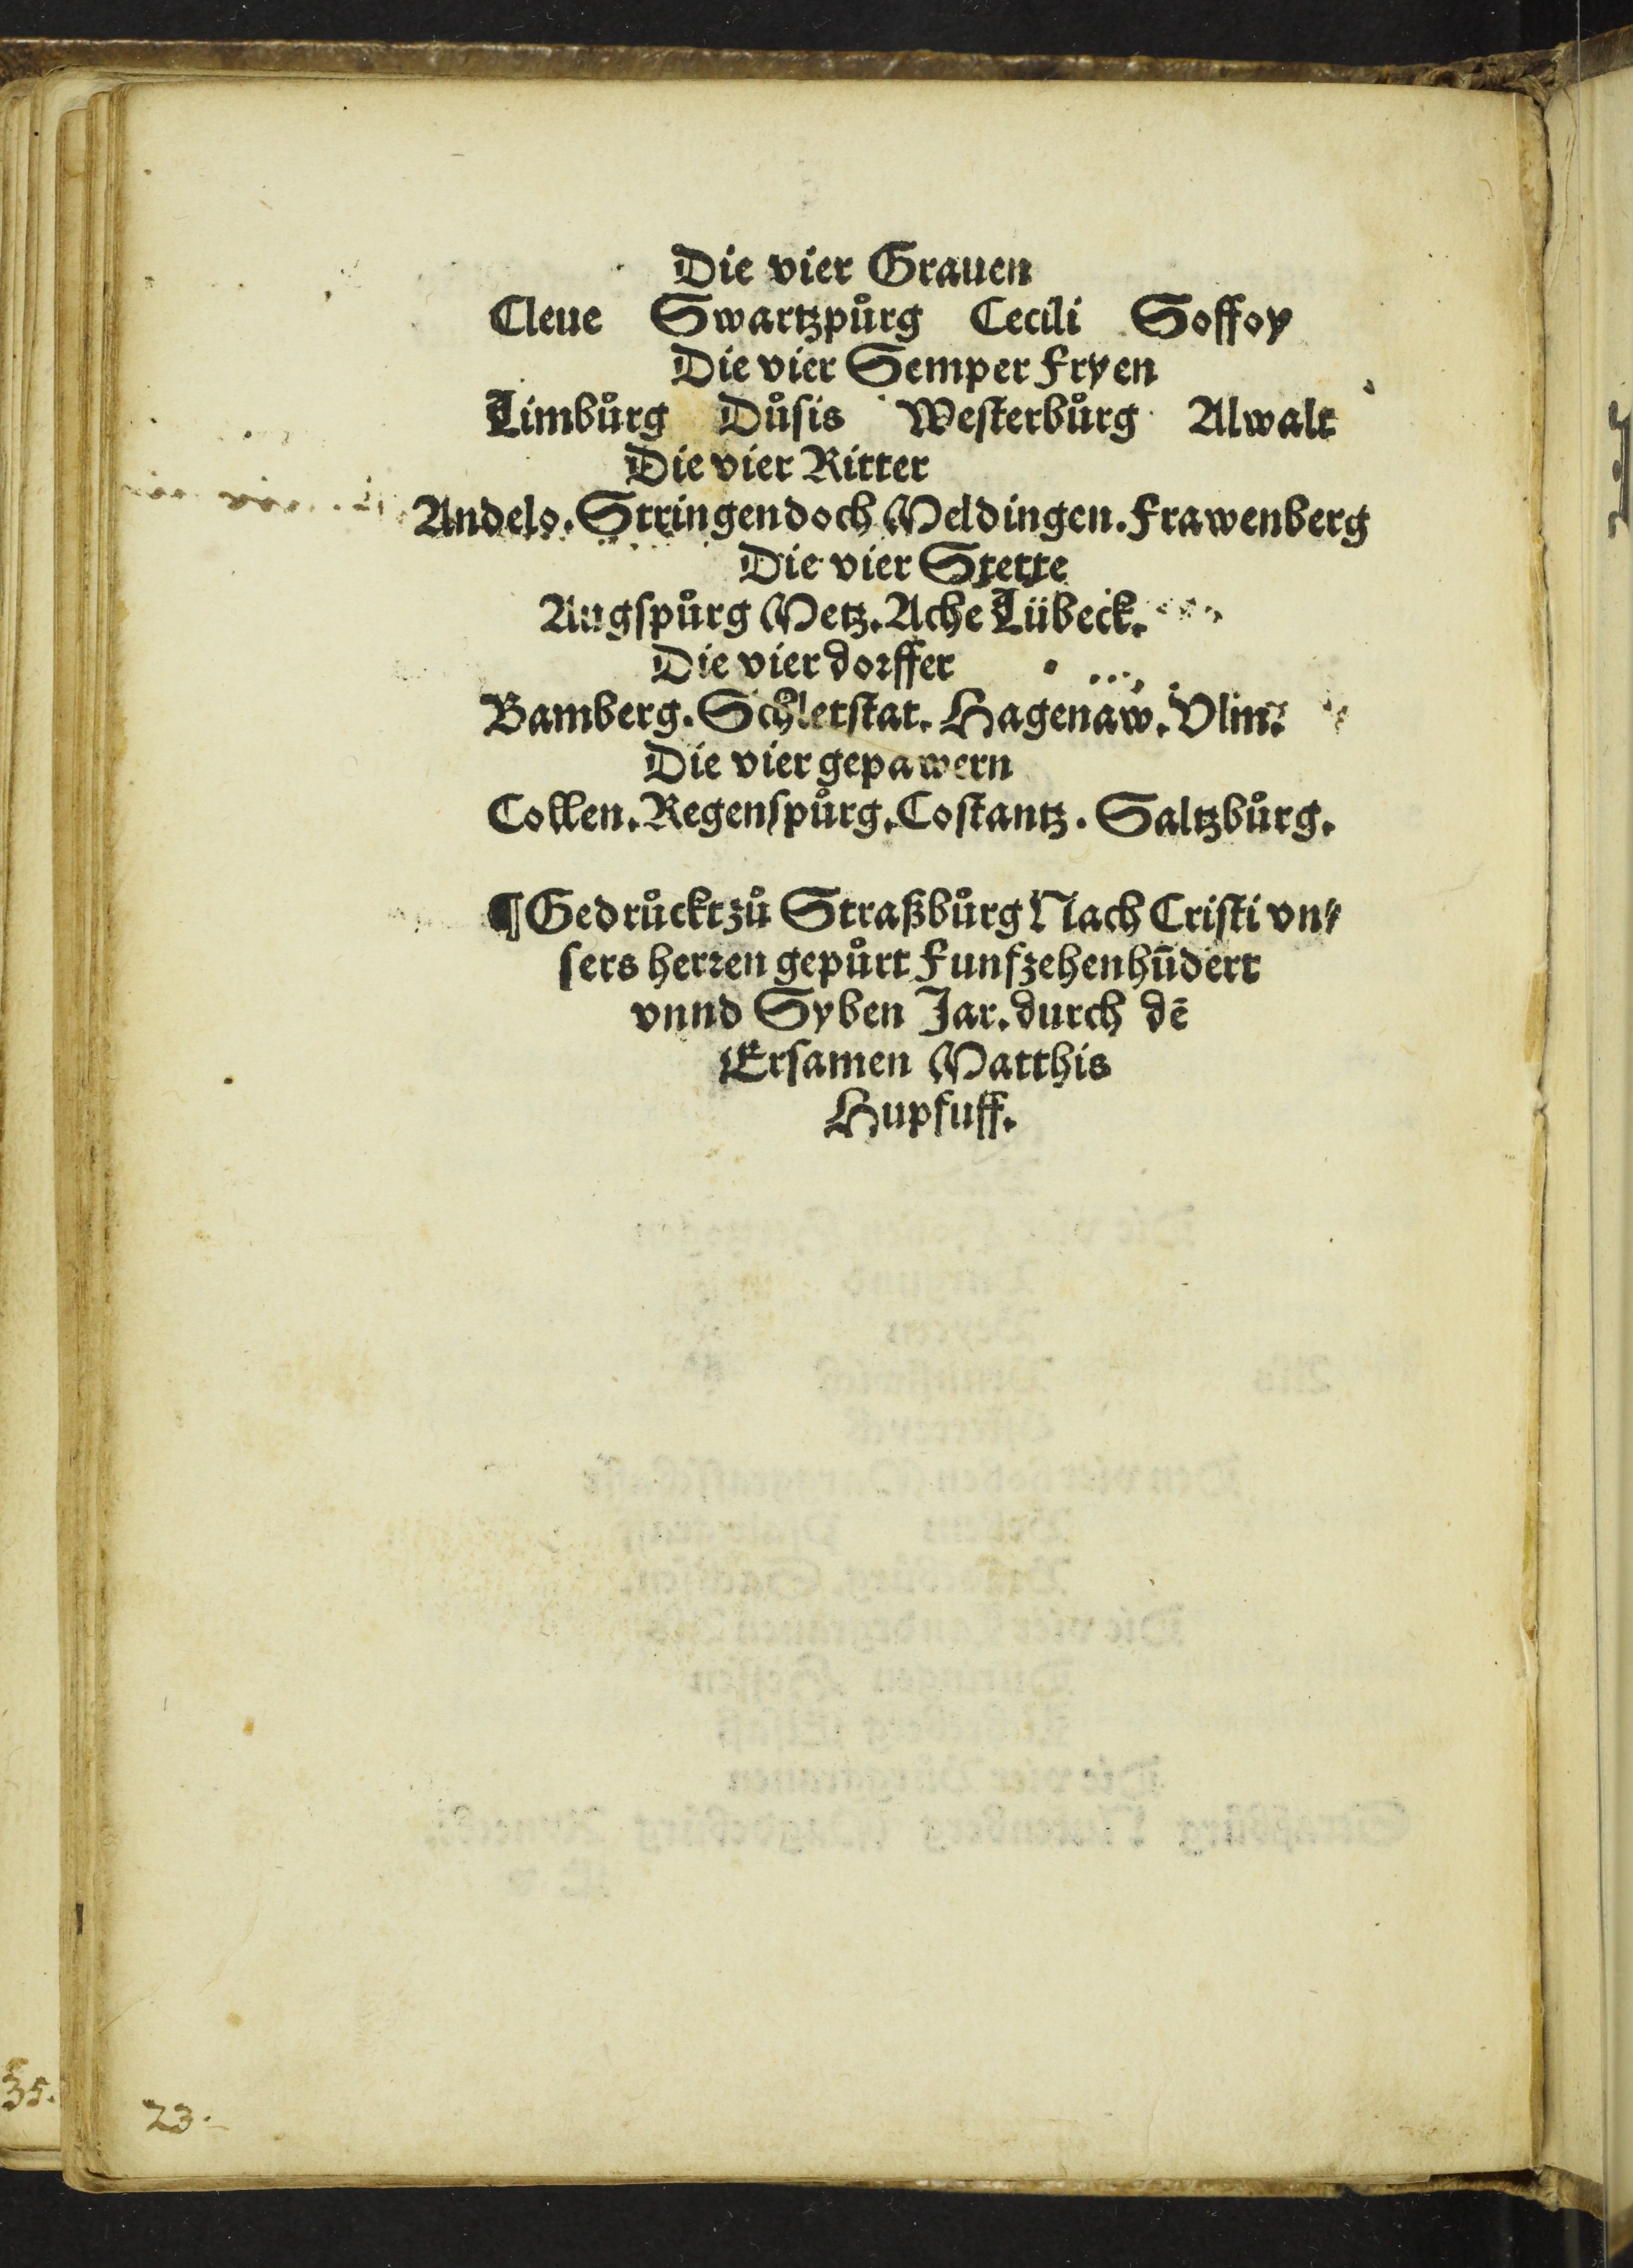 Die vier Grauen
Cleue Swartzpůrg Cecili Soffoy
Die vier Semper Fryen
Limbůrg Důsis Westerbůrg Alwalt
Die vier Ritter
Andelo. Stringendoch Meldingen. Frawenberg
Die vier Stette
Augspůrg Metz. Ache Lübeck.
Die vier dorffer
Bamberg. Schletstat. Hagenaw. Vlm.
Die vier gepawern
Collen. Regenspůrg. Costantz. Saltzbůrg.
¶ Gedrůckt zů Straßbůrg Nach Cristi vn⸗
sers herren gepůrt Funfzehenhūdert
vnnd Syben Jar. durch dē
Ersamen Matthis
Hupfuff.
35.
23.